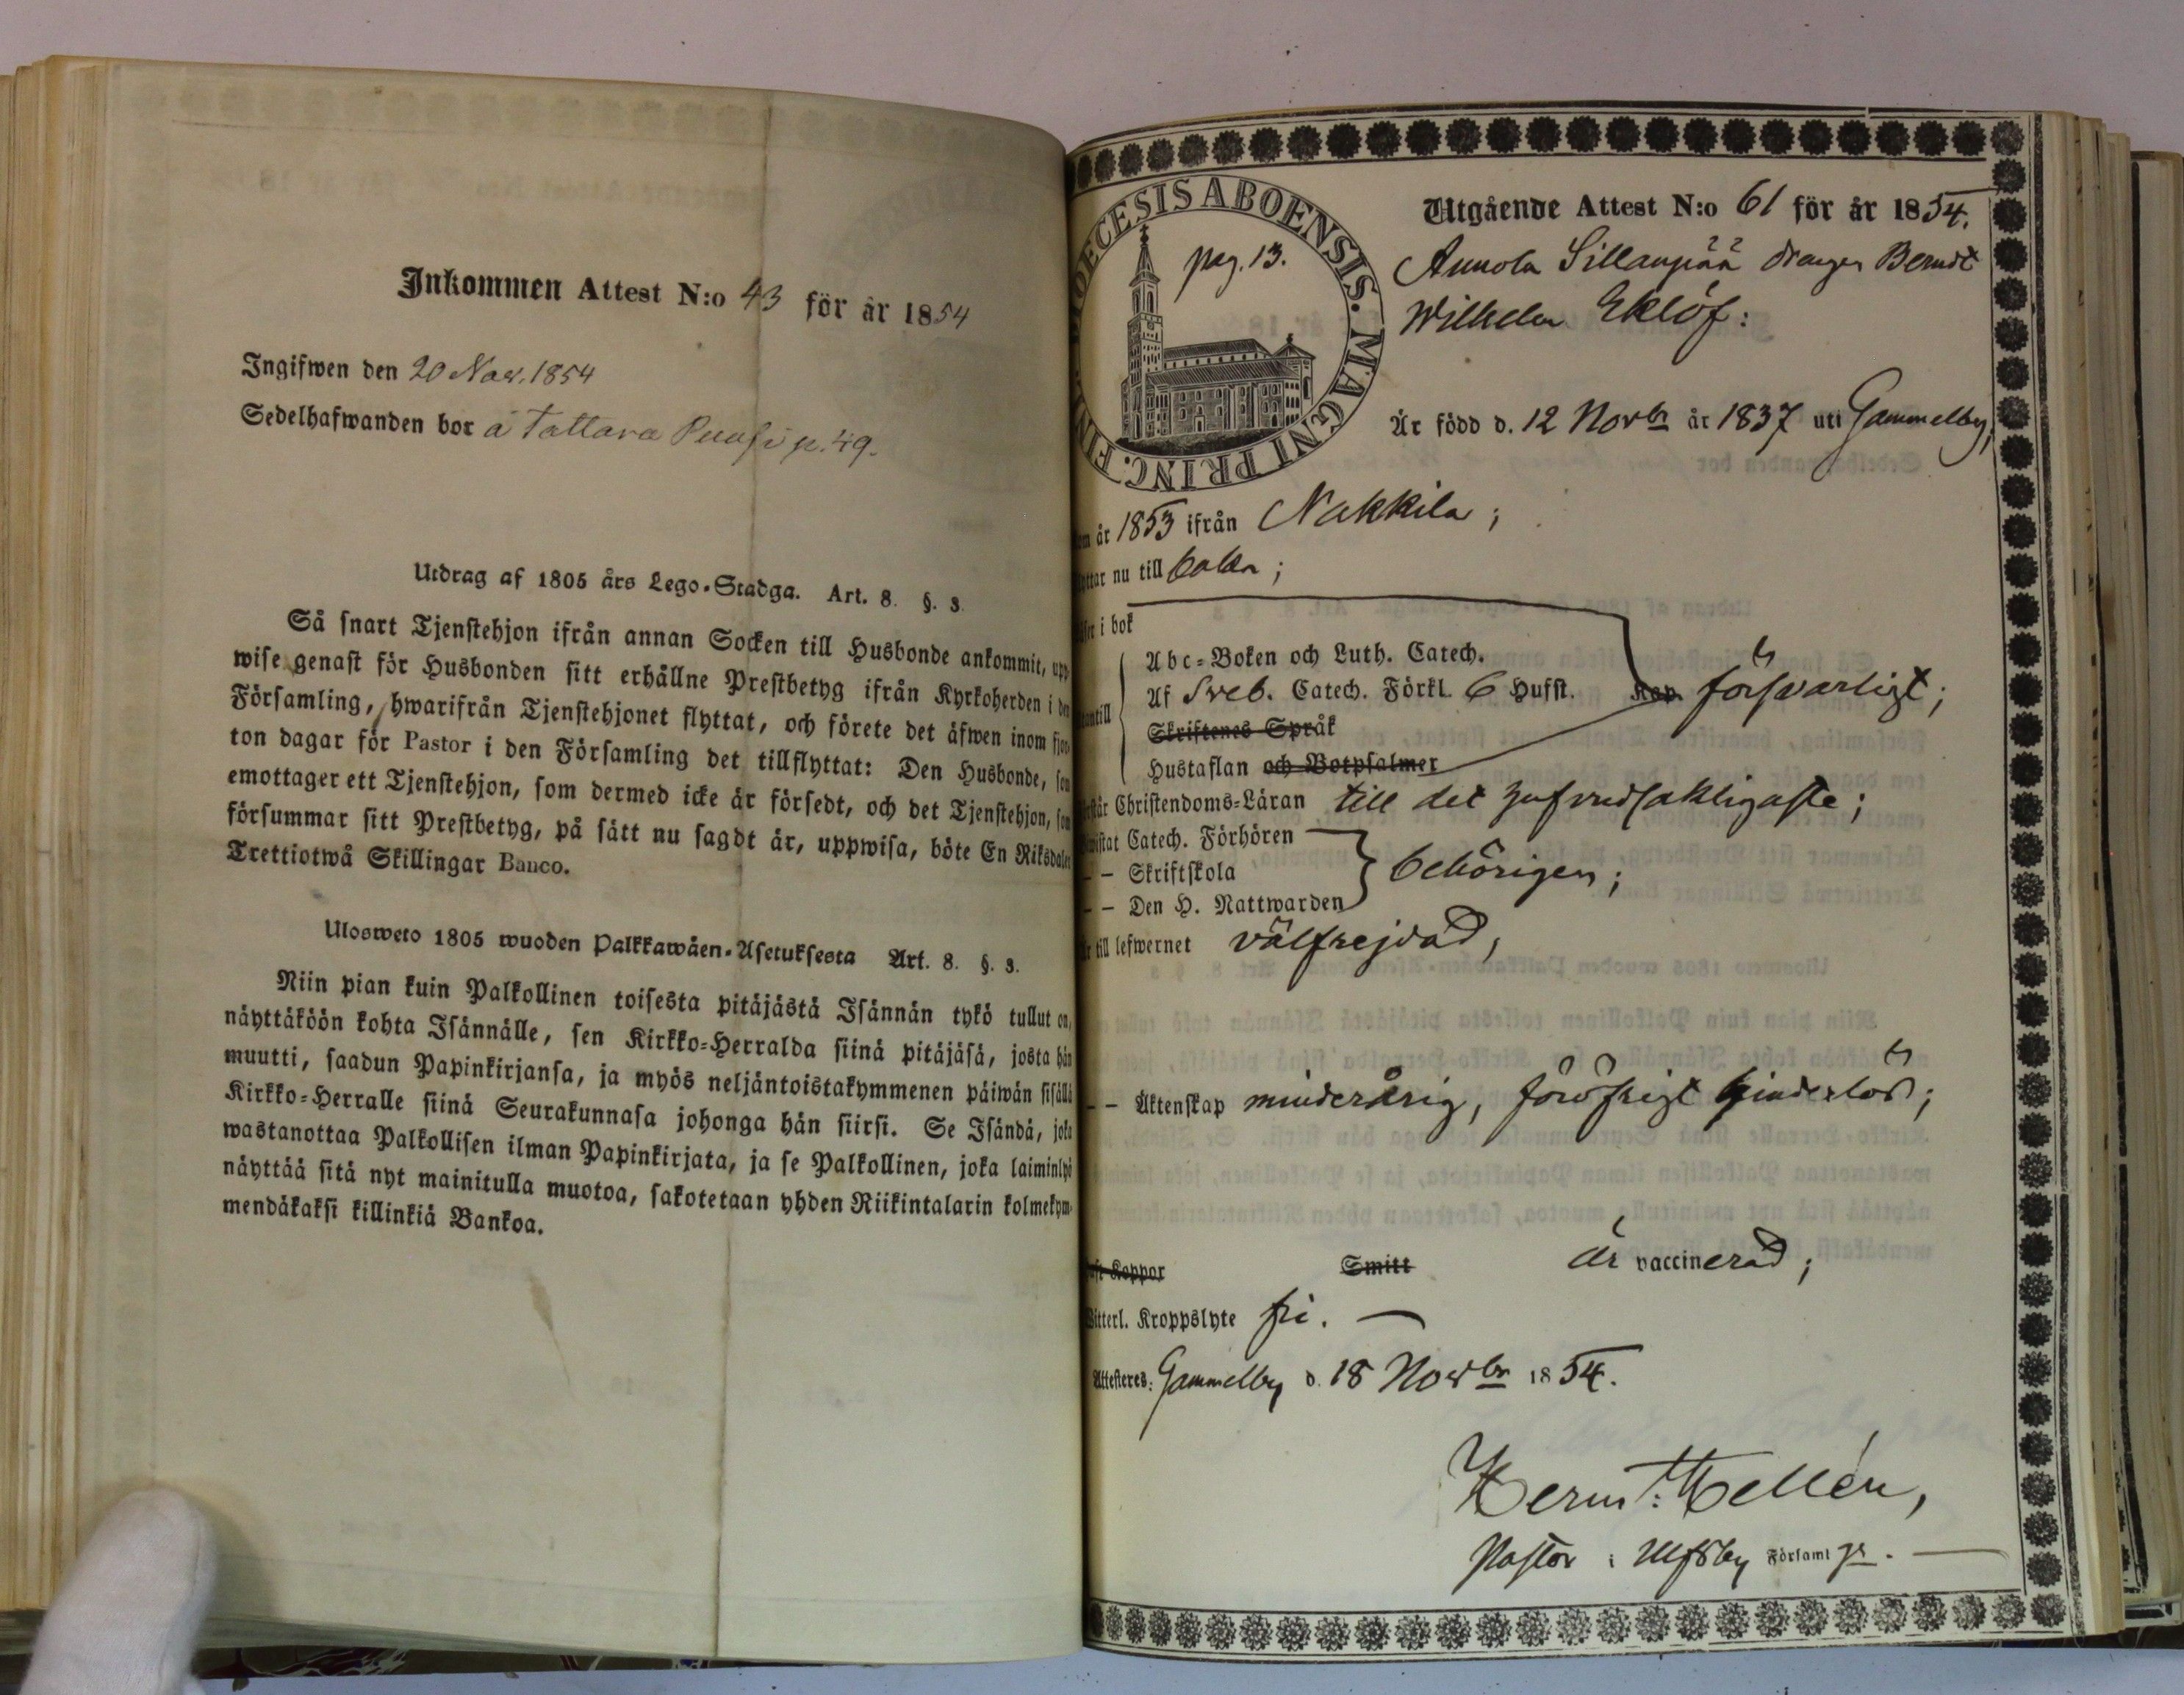 Inkommen Attest N:o 43 för år 1854
Ingifwen den 20 Nov. 1854
Sedelhafwanden bor å Tattara p. 49.
Utdrag af 1805 års Lego-Stadga. Art. 8. §. 3.
Så snart Tjenstehjon ifrån annan Socken till Husbonde ankommit, upp-
wise genast för Husbonden sitt erhållne Prestbetyg ifrån Kyrkoherden i den
Församling, hwarifrån Tjenstehjonet flyttat, och förete det äfwen inom fjor-
ton dagar för Pastor i den Församling det tillflyttat: Den Husbonde, som
emottager ett Tjenstehjon, som dermed icke är försedt, och det Tjenstehjon, som
försummar sitt Prestbetyg, på sätt nu sagdt är, uppwisa, böte En Riksdaler
Trettiotwå Skillingar Banco.
Ulosweto 1805 wuoden Palkkawäen-Asetuksesta Art. 8. §. 3.
Niin pian kuin Palkollinen toisesta pitäjästä Isännän tykö tullut on,
näyttäköön kohta Isännälle, sen Kirkko-Herralda siinä pitäjäsä, josta hän
muutti, saadun Papinkirjansa, ja myös neljäntoistakymmenen päiwän sisällä
Kirkko-Herralle siinä Seurakunnasa johonga hän siirsi. Se Isändä, joka
wastanottaa Palkollisen ilman Papinkirjata, ja se Palkollinen, joka laiminlyö
näyttää sitä nyt mainitulla muotoa, sakotetaan yhden Riikintalarin kolmekym-
mendäkaksi killinkiä Bankoa.
DIOECESIS ABOENSIS. MAGNI PRINC. FINL.
pag. 13.
Utgående Attest N:o 61 för år 1854.
Annola Sillanpää drängen Berndt
Wilhelm Eklöf:
Är född d. 12 Novbr år 1837 uti Gammelby,
om år 1853 ifrån Nakkila;
yttar nu till
i bok
Abc-Boken och Luth. Catech.
Af Sveb. Catech. Förkl. 6 Hufst. Kap. försvarligt;
antill
Skriftenes Språk
Hustaflan och Botpsalmer
rstår Christendoms-Läran till det hufvudsakligaste;
wistat Catech. Förhören
- - Skriftskola behörigen;
- - Den H. Nattwarden
r till lefwernet välfrejdad,
- - Äktenskap minderårig, föröfrigt hinderlös;
Koppor Smitt är vaccinerad;
Witterl. Kroppslyte fri.
Attesteres: Gammelby d. 18 Novbr 1854.
Herm: Hellén,
Pastor i Ulfsby Församlgr.